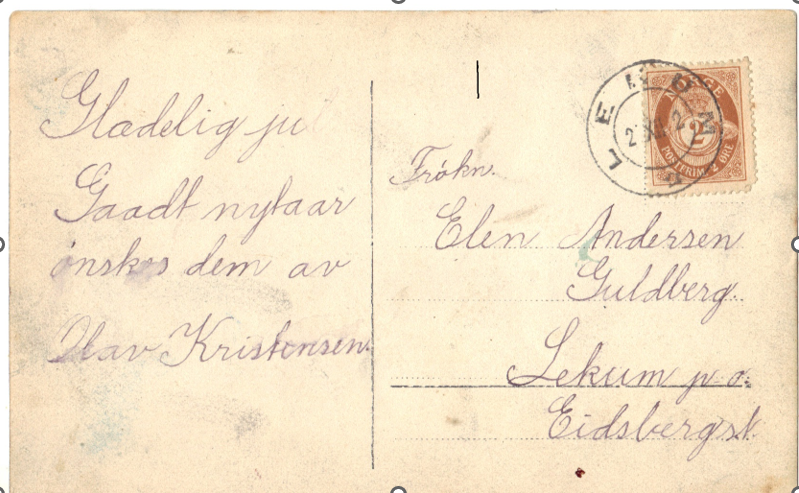 Glædelig ju
Gaadt nytaar
ønskes dem av
Olav Kristensen.
Frökn.
Elen Andersen
Guldberg.
Lekum p. o.
Eidsbergst.
NORGE
2
POSTFRIM. 2 ØRE